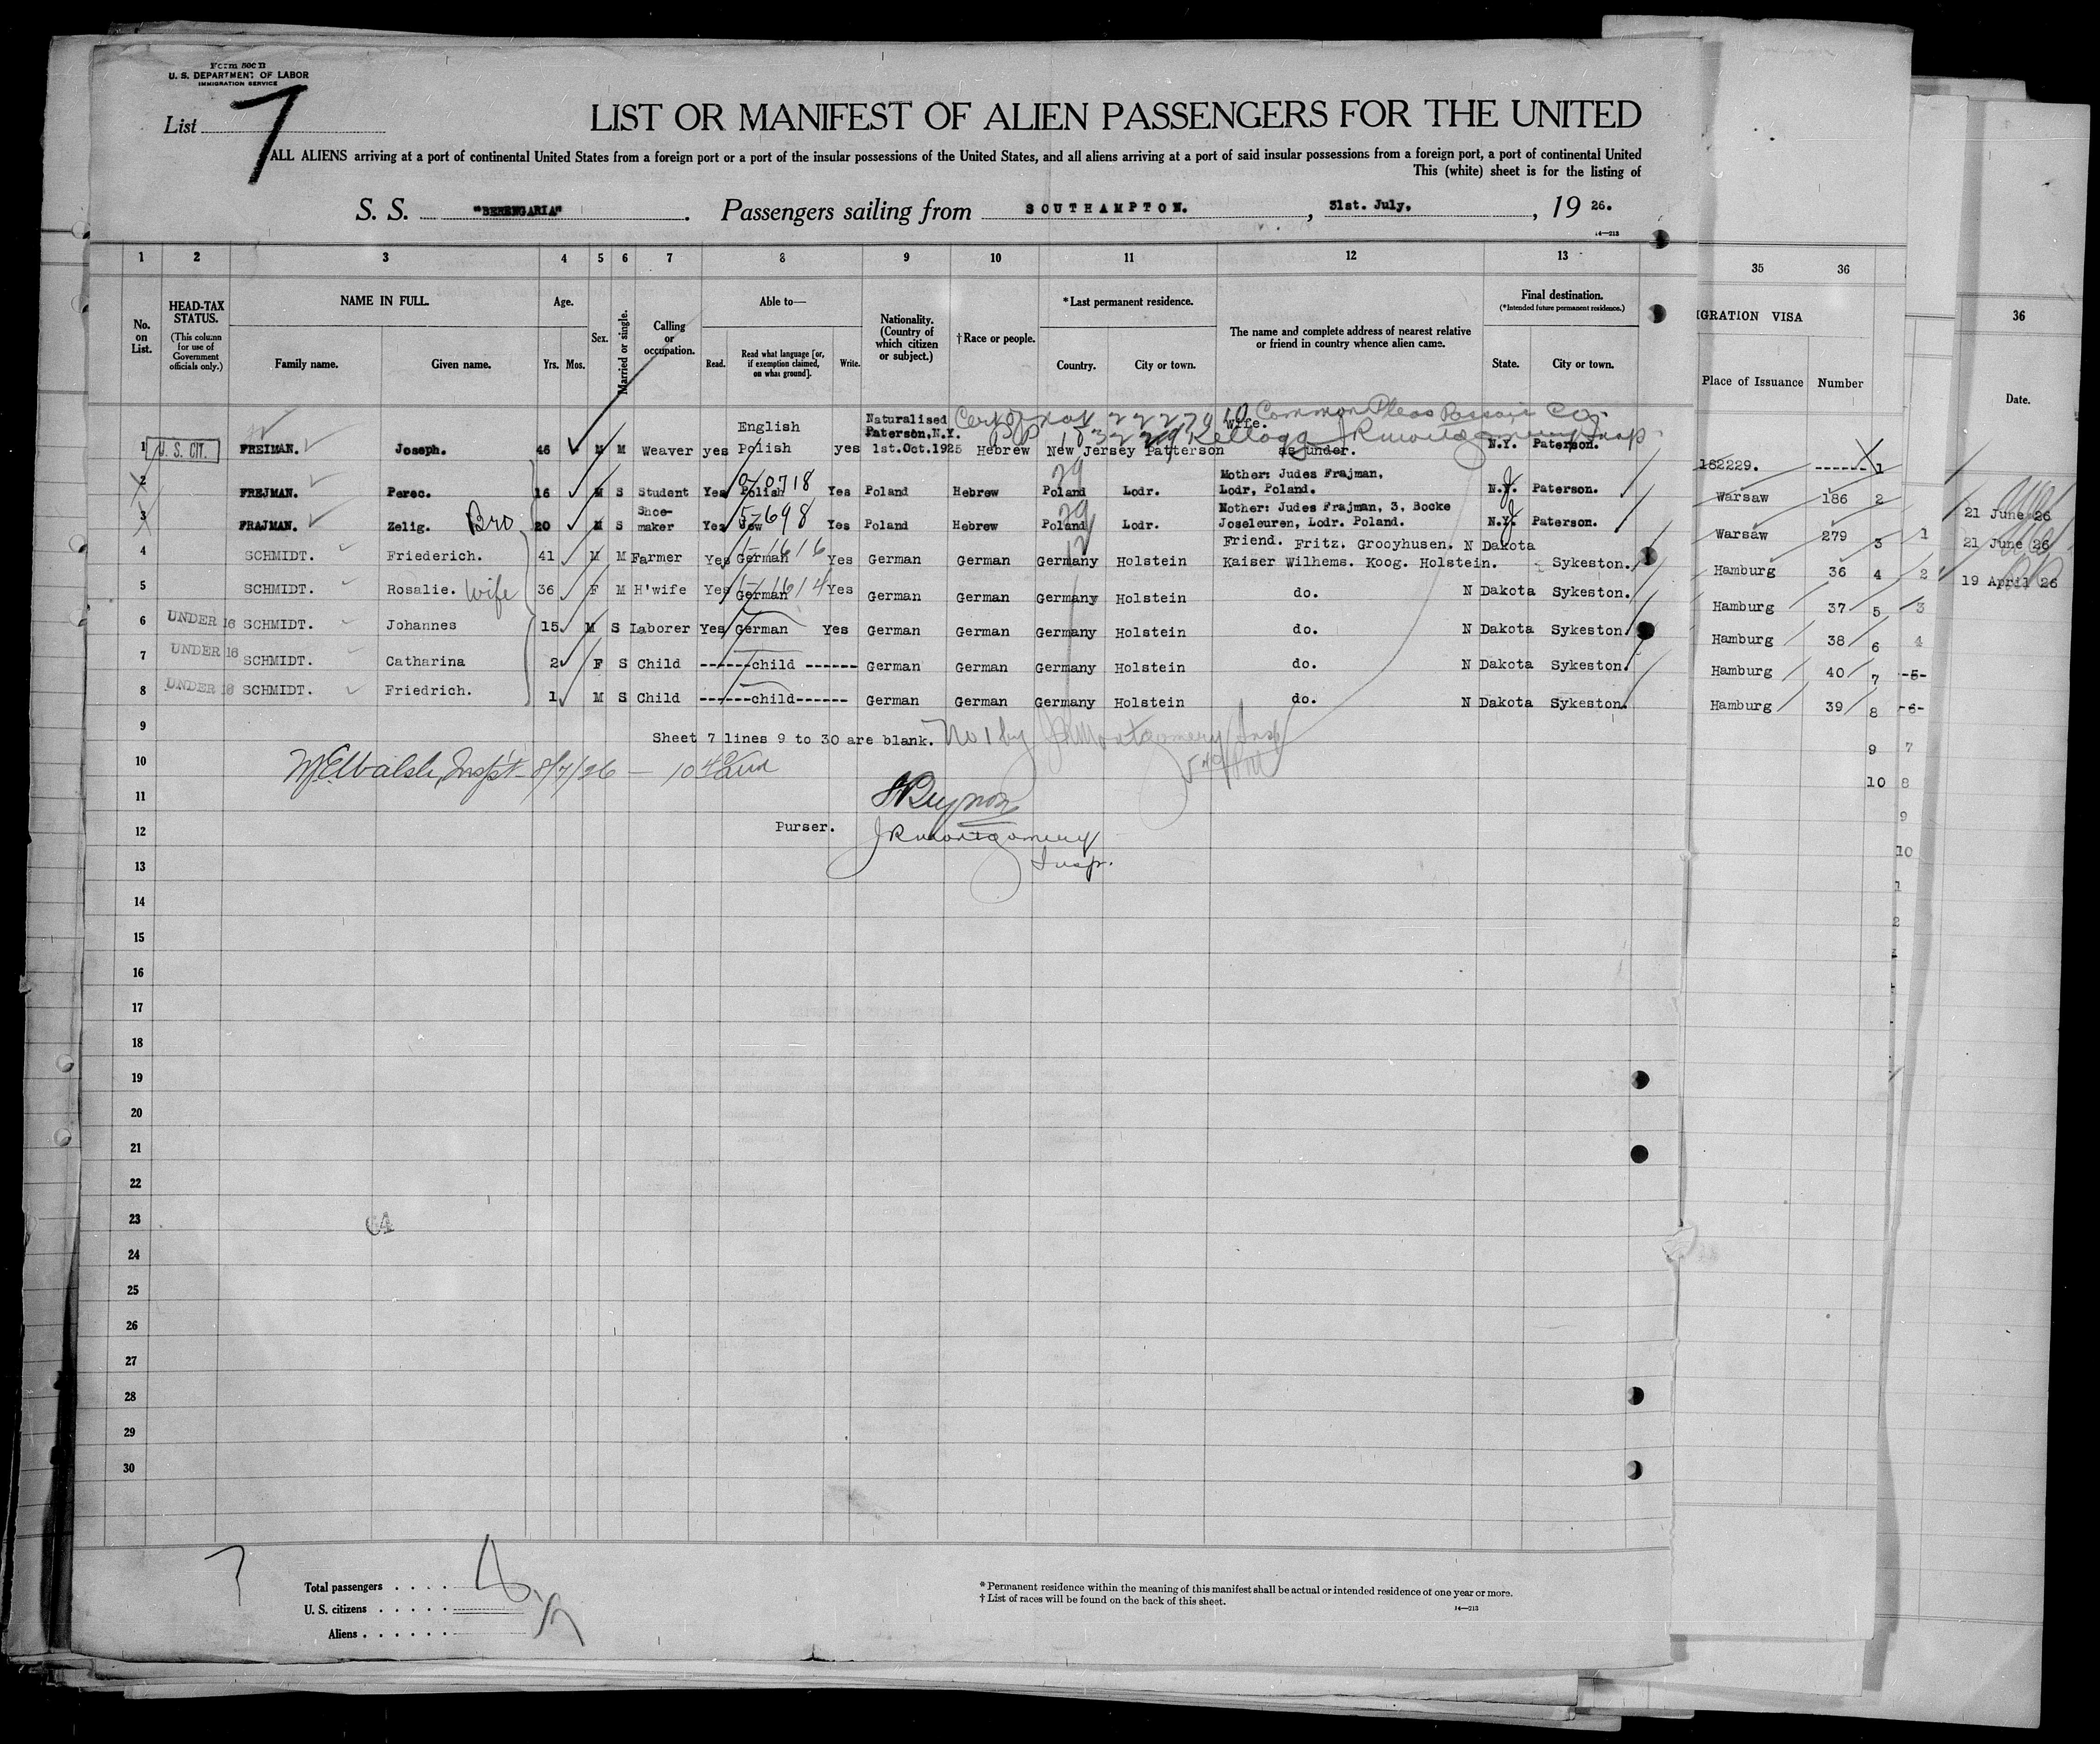 Form 500 B
U. S. DEPARTMENT OF LABOR
IMMIGRATION SERVICE
List 7
LIST OR MANIFEST OF ALIEN PASSENGERS FOR THE UNITED
ALL ALIENS arriving at a port of continental United States from a foreign port or a port of the insular possessions of the United States, and all aliens arriving at a port of said insular possessions from a foreign port, a port of continental United
This (white) sheet is for the listing of
S. S. "BERENGARIA". Passengers sailing from SOUTHAMPTON. , 31st. July. , 19 26.
14—213
1 2 3 4 5 6 7 8 9 10 11 12 13 35 36
No. on List.
HEAD-TAX STATUS.
(This column for use of Government officials only.)
NAME IN FULL.
Family name. Given name.
Age.
Yrs. Mos.
Sex.
Married or single.
Calling or occupation.
Able to—
Read. Read what language [or, if exemption claimed, on what ground]. Write.
Nationality. (Country of which citizen or subject.)
†Race or people.
*Last permanent residence.
Country. City or town.
The name and complete address of nearest relative or friend in country whence alien came.
Final destination.
(*Intended future permanent residence.)
State. City or town.
IGRATION VISA
Place of Issuance Number
36
Date.
Naturalised Cert of Nat 2227940 Common Pleas Passaic Co.
English Paterson, N.Y. Wife.
1 U. S. CIT. FREIMAN. Joseph. 46 M M Weaver yes Polish yes 1st.Oct.1925 Hebrew New Jersey Patterson as under. N.Y. Paterson. 162229. ------ 1
070718 29 Mother: Judes Frajman,
2 FREJMAN. Perec. 16 M S Student Yes Polish Yes Poland Hebrew Poland Lodr. Lodr, Poland. N.Y. Paterson. Warsaw 186 2 21 June 26
Shoe- 5-698 29 Mother: Judes Frajman, 3, Bocke
3 FRAJMAN. Zelig. Bro 20 M S maker Yes Jew Yes Poland Hebrew Poland Lodr. Joseleuren, Lodr. Poland. N.Y. Paterson. Warsaw 279 3 1 21 June 26
Friend. Fritz. Grooyhusen. N Dakota
4 SCHMIDT. Friederich. 41 M M Farmer Yes German Yes German German Germany Holstein Kaiser Wilhems. Koog. Holstein. Sykeston. Hamburg 36 4 2 19 April 26
5 SCHMIDT. Rosalie. Wife 36 F M H'wife Yes German Yes German German Germany Holstein do. N Dakota Sykeston. Hamburg 37 5 3
6 UNDER 16 SCHMIDT. Johannes 15 M S Laborer Yes German Yes German German Germany Holstein do. N Dakota Sykeston. Hamburg 38 6 4
7 UNDER 16 SCHMIDT. Catharina 2 F S Child ------child ------ German German Germany Holstein do. N Dakota Sykeston. Hamburg 40 7 -5-
8 UNDER 16 SCHMIDT. Friedrich. 1 M S Child ------child------ German German Germany Holstein do. N Dakota Sykeston. Hamburg 39 8 -6-
9 Sheet 7 lines 9 to 30 are blank. No 1 by JRMontgomery Insp 9 7
10 10 8
11 9
12 Purser. JRMontgomery
Insp. 10
13
14
15
16
17
18
19
20
21
22
23
24
25
26
27
28
29
30
Total passengers . . . . .
U. S. citizens . . . . .
Aliens . . . . . .
* Permanent residence within the meaning of this manifest shall be actual or intended residence of one year or more.
† List of races will be found on the back of this sheet.
14—213